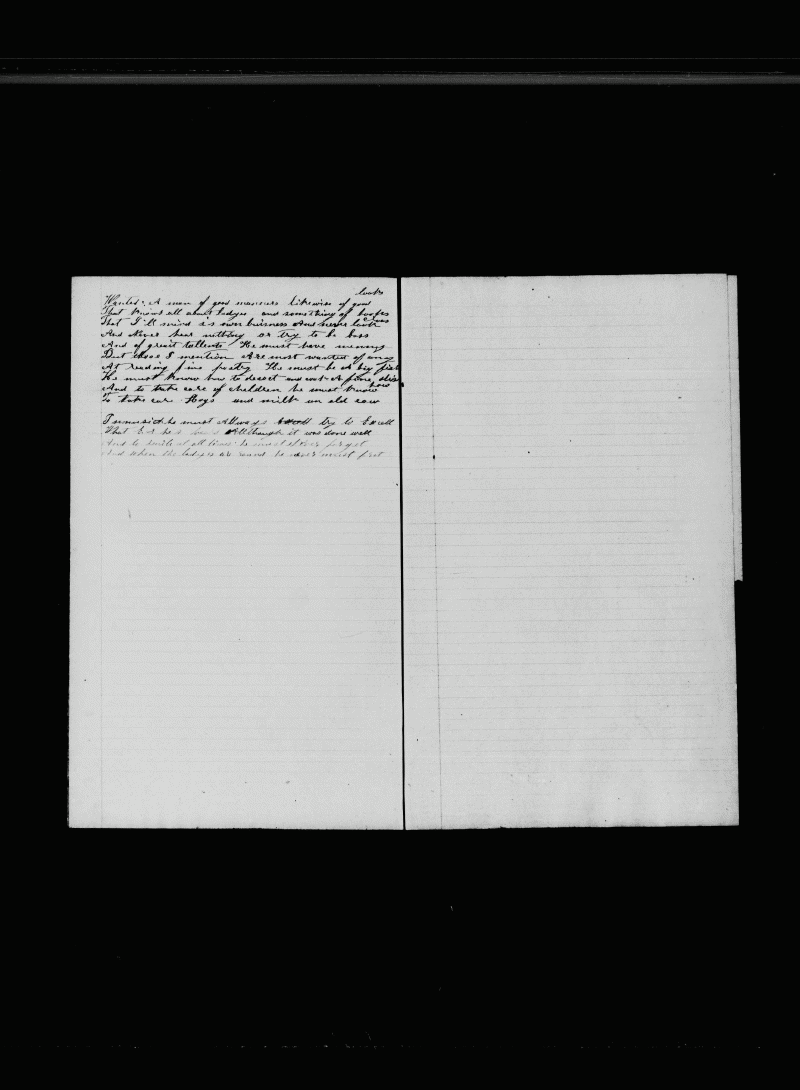 looks
Wanted: A man of good manners likewise of good
That knows all about ladyes and something of bookes
That I'll mind is own buirness and never look cross
And Never hear nothing or try to be boss
And of great tallents He must have meney
But those I mention Are most wanted of any
At reading fine poetry He must be A big fish
He must know how to desect and eat A fine dish
And to take care of children he must know how
To take care Hogs and milk an old cow
In musick he must Allways try to Excell
What he Allthough it was done well
And to smile at all times he must Never forget
And when the ladyes are round he never must fret